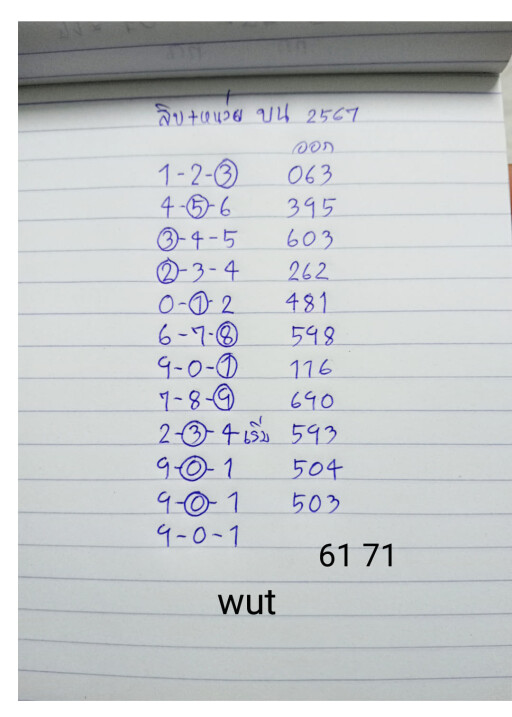 สิบ+หน่วย บน 2567
ออก
1-2-3 063
4-5-6 395
3-4-5 603
2-3-4 262
0-1-2 481
6-7-8 598
9-0-1 116
7-8-9 690
2-3-4 เริ่ม 593
9-0-1 504
9-0-1 503
9-0-1
61 71
wut